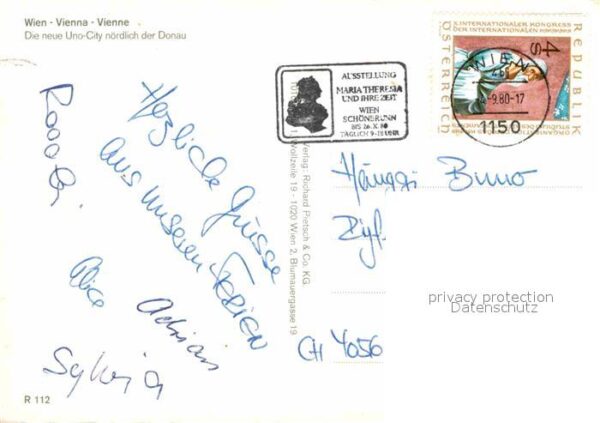 Wien - Vienna - Vienne
Die neue Uno-City nördlich der Donau
Herzliche Grüsse
aus unseren FERIEN
Alice
Adrian
Sylvia
R 112
Verlag: Richard Pietsch & Co. KG.
Wollzeile 19 - 1020 Wien 2, Blumauergasse 19
AUSSTELLUNG
MARIA THERESIA
UND IHRE ZEIT
WIEN
SCHÖNBRUNN
BIS 26.X.80
TÄGLICH 9-17 UHR
WIEN
9.80-17
1150
X. INTERNATIONALER KONGRESS
DER INTERNATIONALEN
4S
REPUBLIK
ÖSTERREICH
Hänggi Bruno
CH 4056
privacy protection
Datenschutz